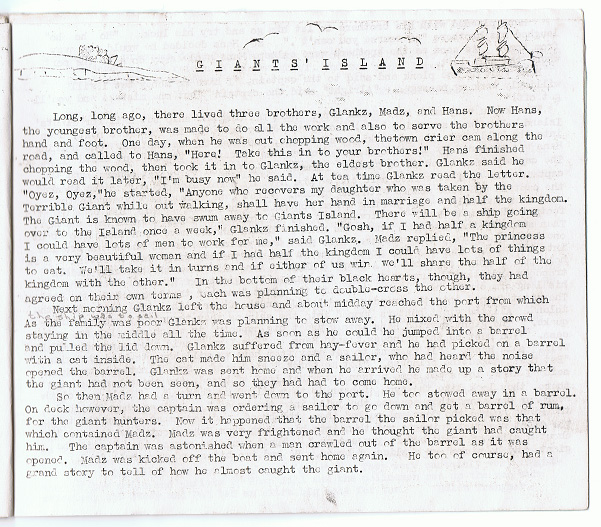 GIANTS' ISLAND
Long, long ago, there lived three brothers, Glankz, Madz, and Hans. Now Hans,
the youngest brother, was made to do all the work and also to serve the brothers
hand and foot. One day, when he was cut chopping wood, thetown crier cam along the
road, and called to Hans, "Here! Take this in to your brothers!" Hans finished
chopping the wood, then took it in to Glankz, the eldest brother. Glankz said he
would read it later, "I'm busy now" he said. At tea time Glankz read the letter.
"Oyez, Oyez,"he started, "Anyone who recovers my daughter who was taken by the
Terrible Giant while out walking, shall have her hand in marriage and half the kingdom.
The Giant is known to have swum away to Giants Island. There will be a ship going
over to the Island once a week," Glankz finished. "Gosh, if I had half a kingdom
I could have lots of men to work for me," said Glankz. Madz replied, "The princess
is a very beautiful woman and if I had half the kingdom I could have lots of things
to eat. We'll take it in turns and if either of us win we'll share the half of the
kingdom with the other." In the bottom of their black hearts, though, they had
agreed on their own terms , each was planning to double-cross the other.
Next morning Glankz left the house and about midday reached the port from which
the ship was to sail
As the family was poor Glankz was planning to stow away. He mixed with the crowd
staying in the middle all the time. As soon as he could he jumped into a barrel
and pulled the lid down. Glankz suffered from hay-fever and he had picked on a barrel
with a cat inside. The cat made him sneeze and a sailor, who had heard the noise
opened the barrel. Glankz was sent home and when he arrived he made up a story that
the giant had not been seen, and so they had had to come home.
So then Madz had a turn and went down to the port. He too stowed away in a barrel.
On deck however, the captain was ordering a sailor to go down and get a barrel of rum,
for the giant hunters. Now it happened that the barrel the sailor picked was that
which contained Madz. Madz was very frightened and he thought the giant had caught
him. The captain was astonished when a man crawled out of the barrel as it was
opened. Madz was kicked off the boat and sent home again. He too of course, had a
grand story to tell of how he almost caught the giant.